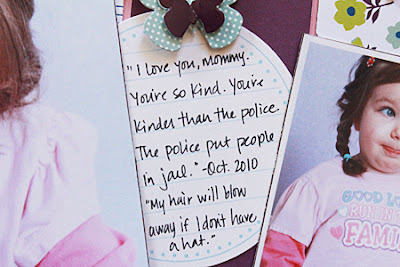 "I love you, mommy.
You're so kind. You're
kinder than the police.
The police put people
in jail." -Oct. 2010
"My hair will blow
away if I don't have
a hat."
GOOD LO
RUN IN T
FAMI